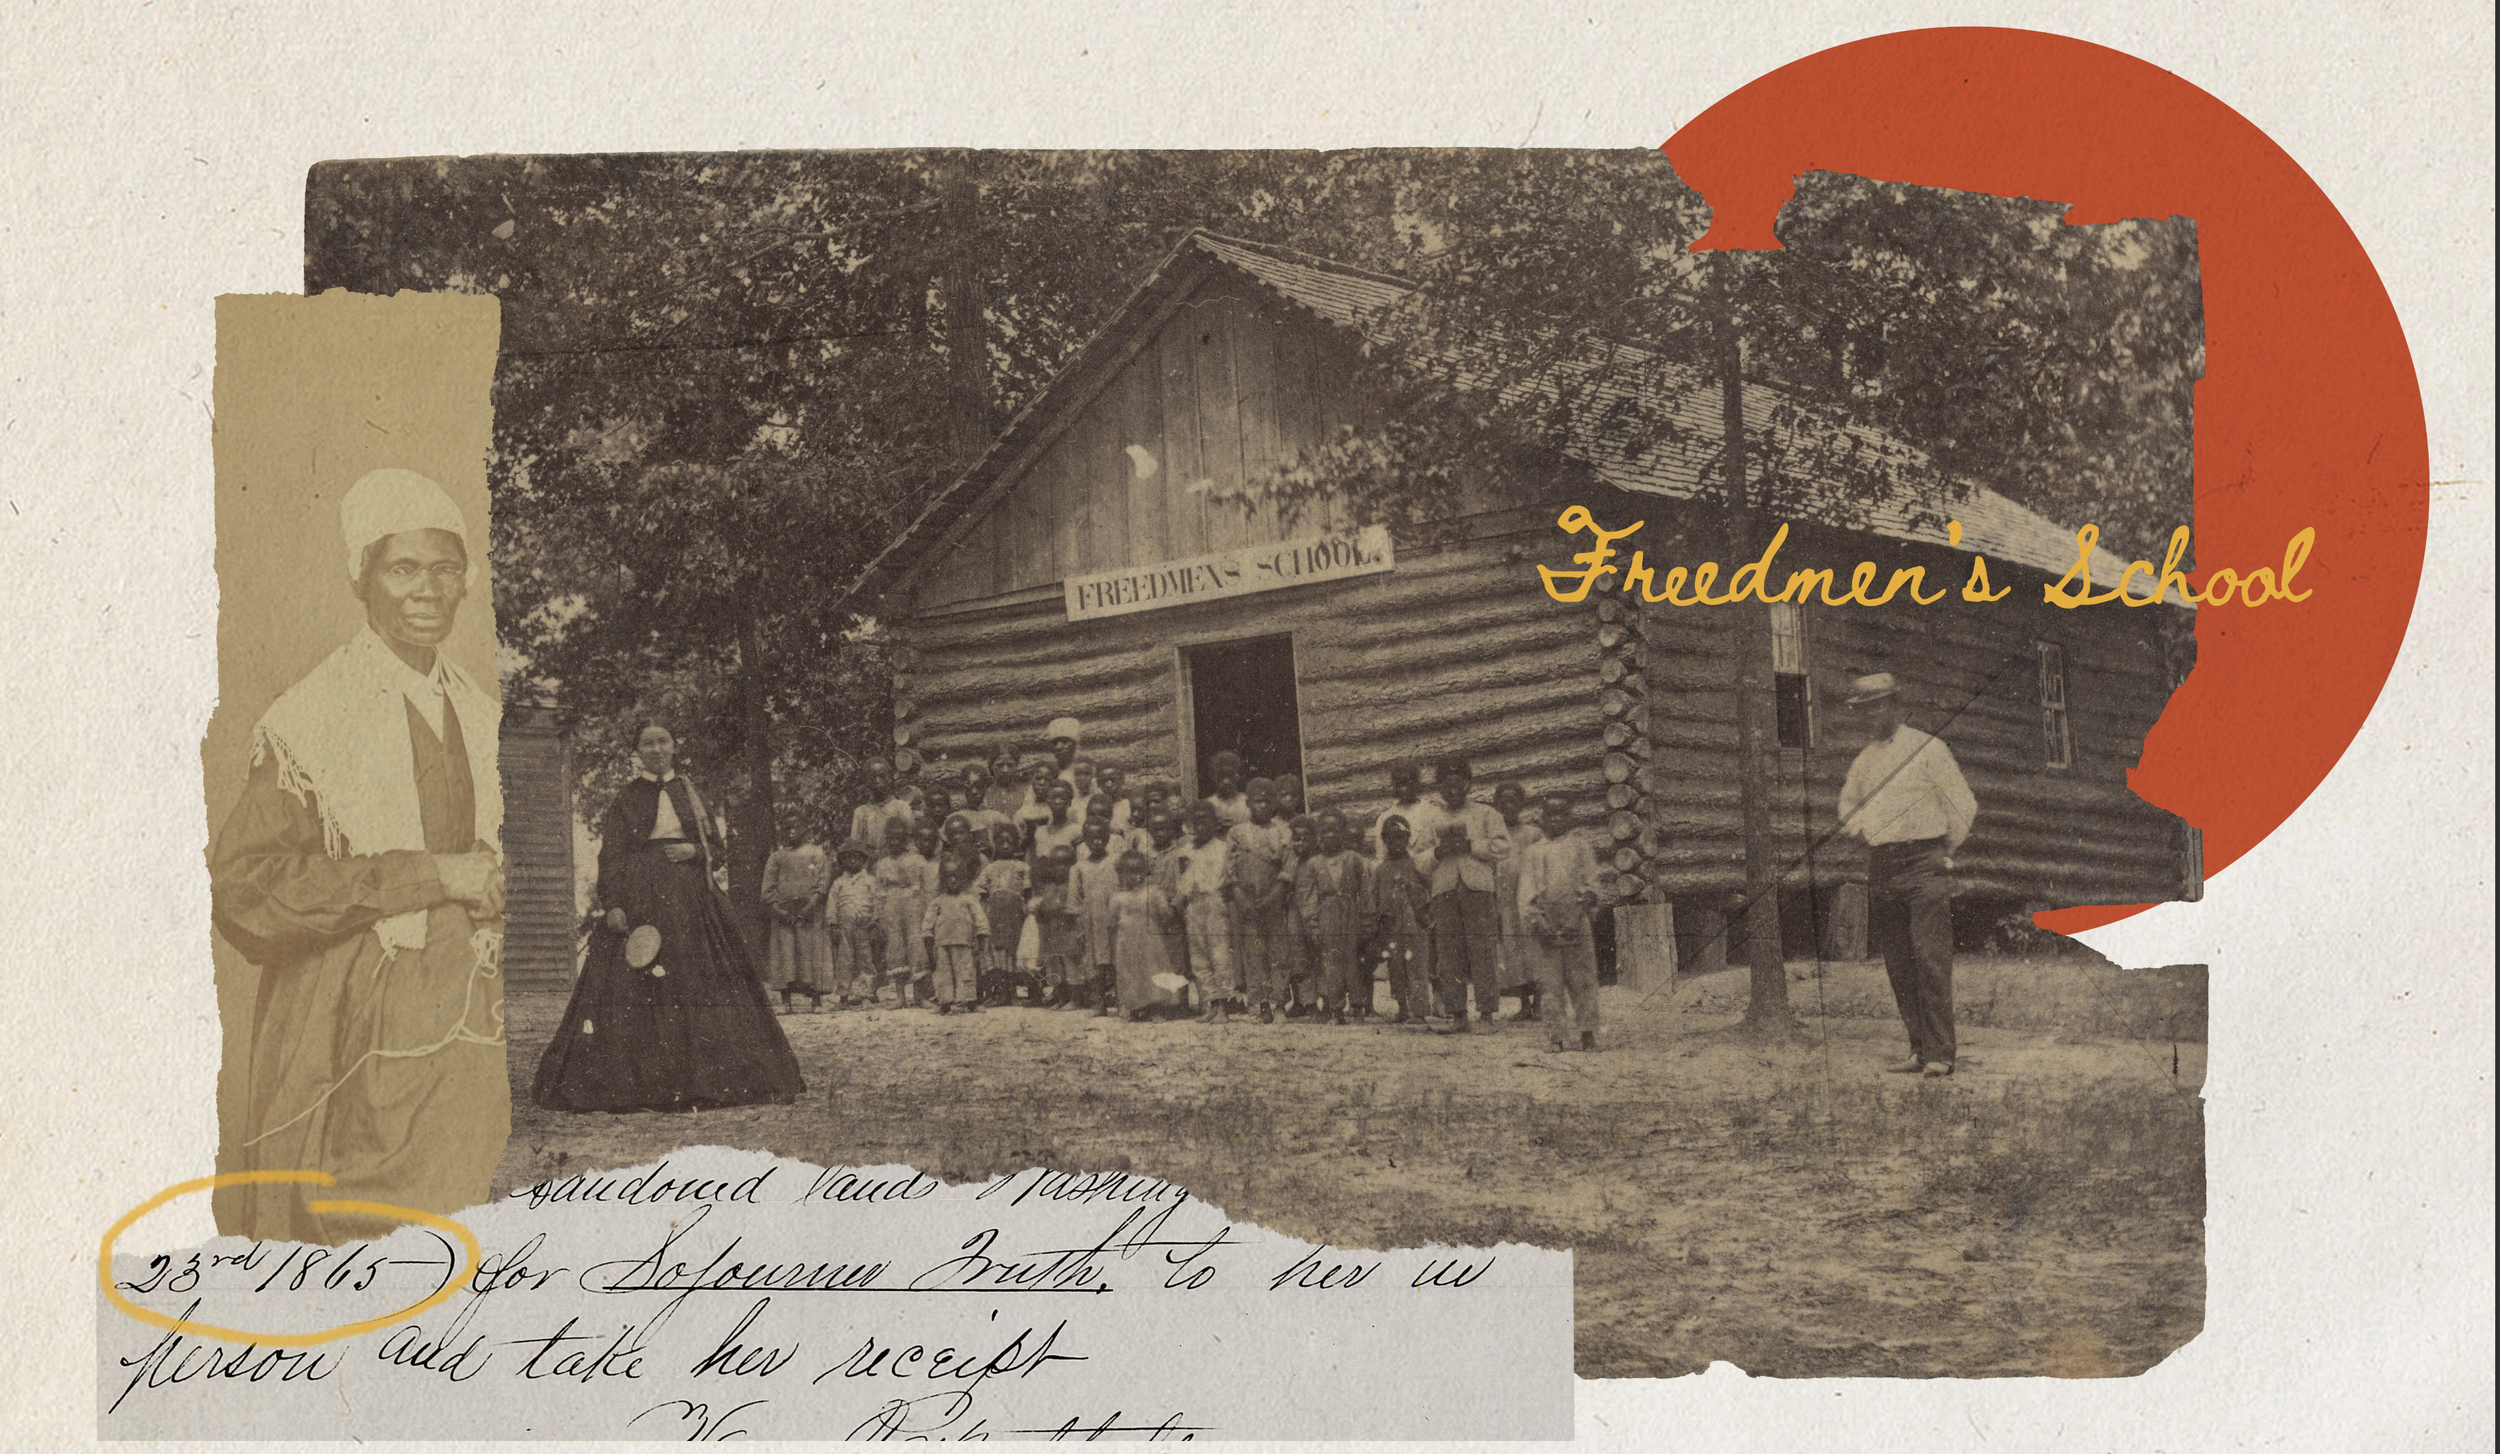 FREEDMENS SCHOOL.
Freedmen's School
andoned lands Washing
23rd 1865) for Sojourner Truth. to her in
person and take her receipt